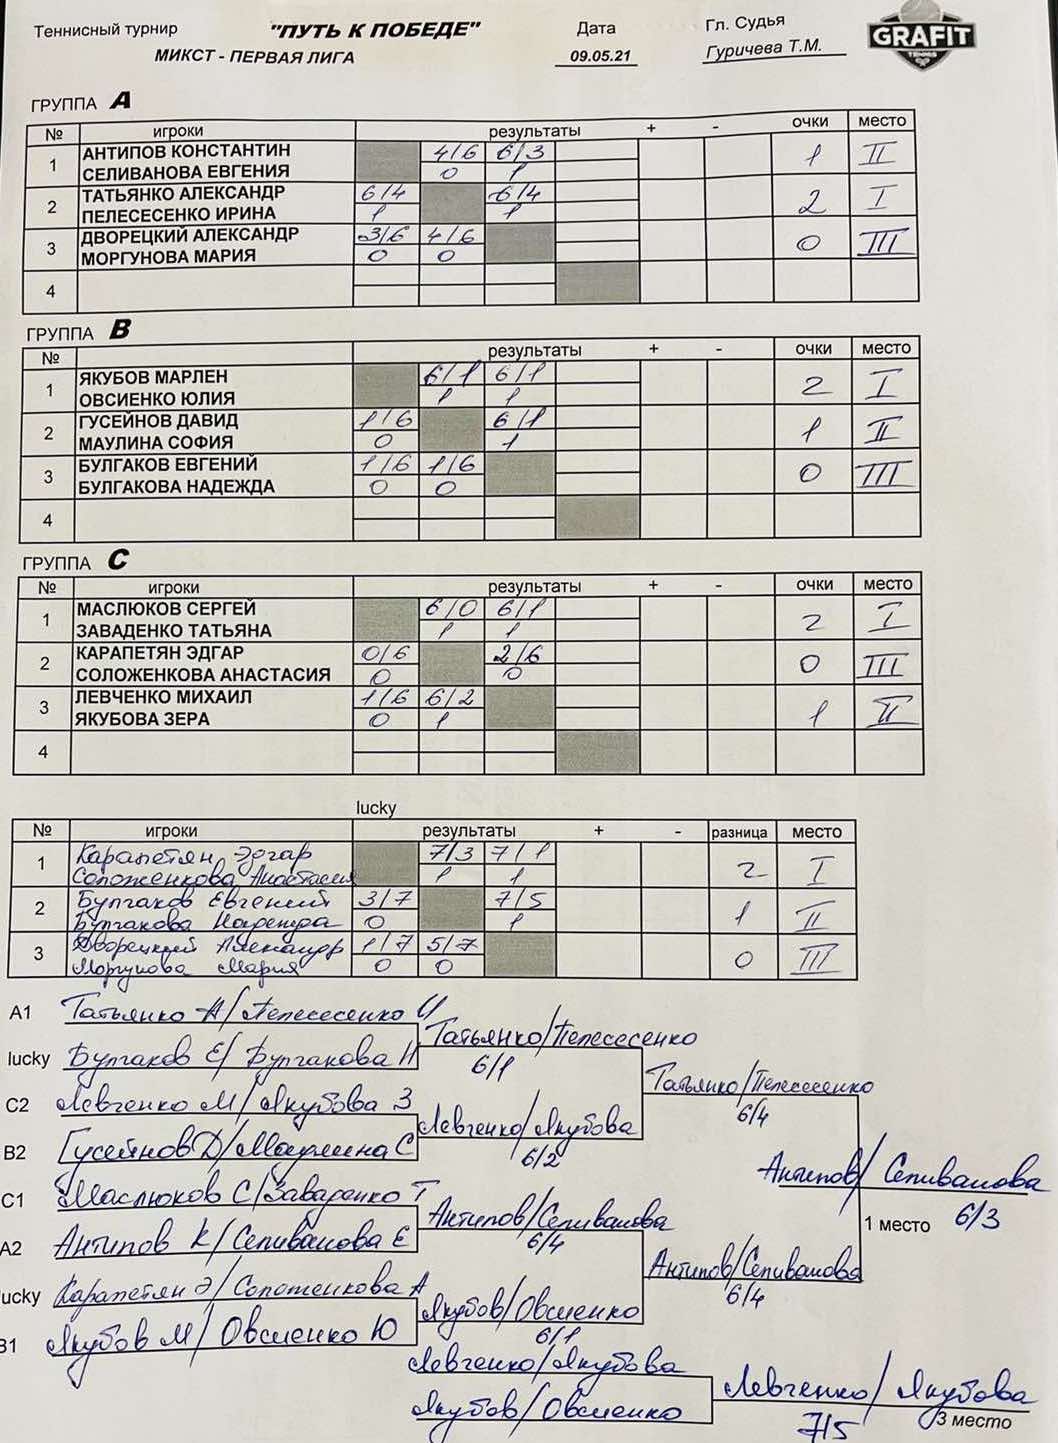 Теннисный турнир "ПУТЬ К ПОБЕДЕ" Дата Гл. Судья GRAFIT
МИКСТ - ПЕРВАЯ ЛИГА 09.05.21 Гуричева Т.М. TENNIS
ГРУППА A
№ игроки результаты + - очки место
1 АНТИПОВ КОНСТАНТИН 4/6 6/3 1 II
СЕЛИВАНОВА ЕВГЕНИЯ 0 1
2 ТАТЬЯНКО АЛЕКСАНДР 6/4 6/4 2 I
ПЕЛЕСЕСЕНКО ИРИНА 1 1
3 ДВОРЕЦКИЙ АЛЕКСАНДР 3/6 4/6 0 III
МОРГУНОВА МАРИЯ 0 0
4
ГРУППА B
№ результаты + - очки место
1 ЯКУБОВ МАРЛЕН 6/1 6/1 2 I
ОВСИЕНКО ЮЛИЯ 1 1
2 ГУСЕЙНОВ ДАВИД 1/6 6/1 1 II
МАУЛИНА СОФИЯ 0 1
3 БУЛГАКОВ ЕВГЕНИЙ 1/6 1/6 0 III
БУЛГАКОВА НАДЕЖДА 0 0
4
ГРУППА C
№ игроки результаты + - очки место
1 МАСЛЮКОВ СЕРГЕЙ 6/0 6/1 2 I
ЗАВАДЕНКО ТАТЬЯНА 1 1
2 КАРАПЕТЯН ЭДГАР 0/6 2/6 0 III
СОЛОЖЕНКОВА АНАСТАСИЯ 0 0
3 ЛЕВЧЕНКО МИХАИЛ 1/6 6/2 1 II
ЯКУБОВА ЗЕРА 0 1
4
lucky
№ игроки результаты + - разница место
1 Карапетян Эдгар 7/3 7/1 2 I
Соложенкова Анастасия 1 1
2 Булгаков Евгений 3/7 7/5 1 II
Булгакова Надежда 0 1
3 Дворецкий Александр 1/7 5/7 0 III
Моргунова Мария 0 0
A1 Татьянко А/Пелесесенко И
Татьянко/Пелесесенко
lucky Булгаков Е/Булгакова Н
6/1
Татьянко/Пелесесенко
C2 Левченко М/Якубова З
6/4
Левченко/Якубова
B2 Гусейнов Д/Маулина С
6/2
Антипов/Селиванова
C1 Маслюков С/Заваденко Т
Антипов/Селиванова
1 место 6/3
A2 Антипов К/Селиванова Е
6/4
Антипов/Селиванова
lucky Карапетян Э/Соложенкова А
6/4
Якубов/Овсиенко
B1 Якубов М/Овсиенко Ю
6/1
Левченко/Якубова
Левченко/Якубова
Якубов/Овсиенко
7/5 3 место